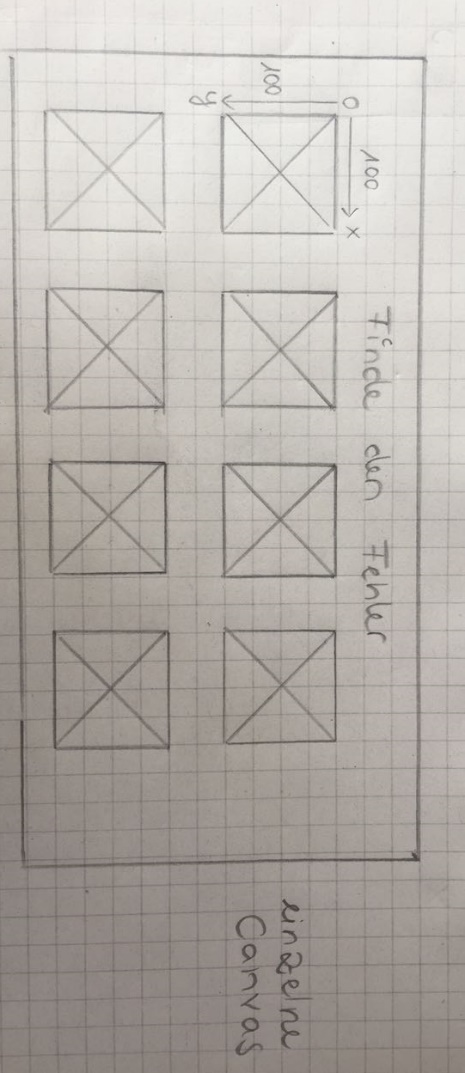 Finde den Fehler
0
100
x
100
y
einzelne
Canvas